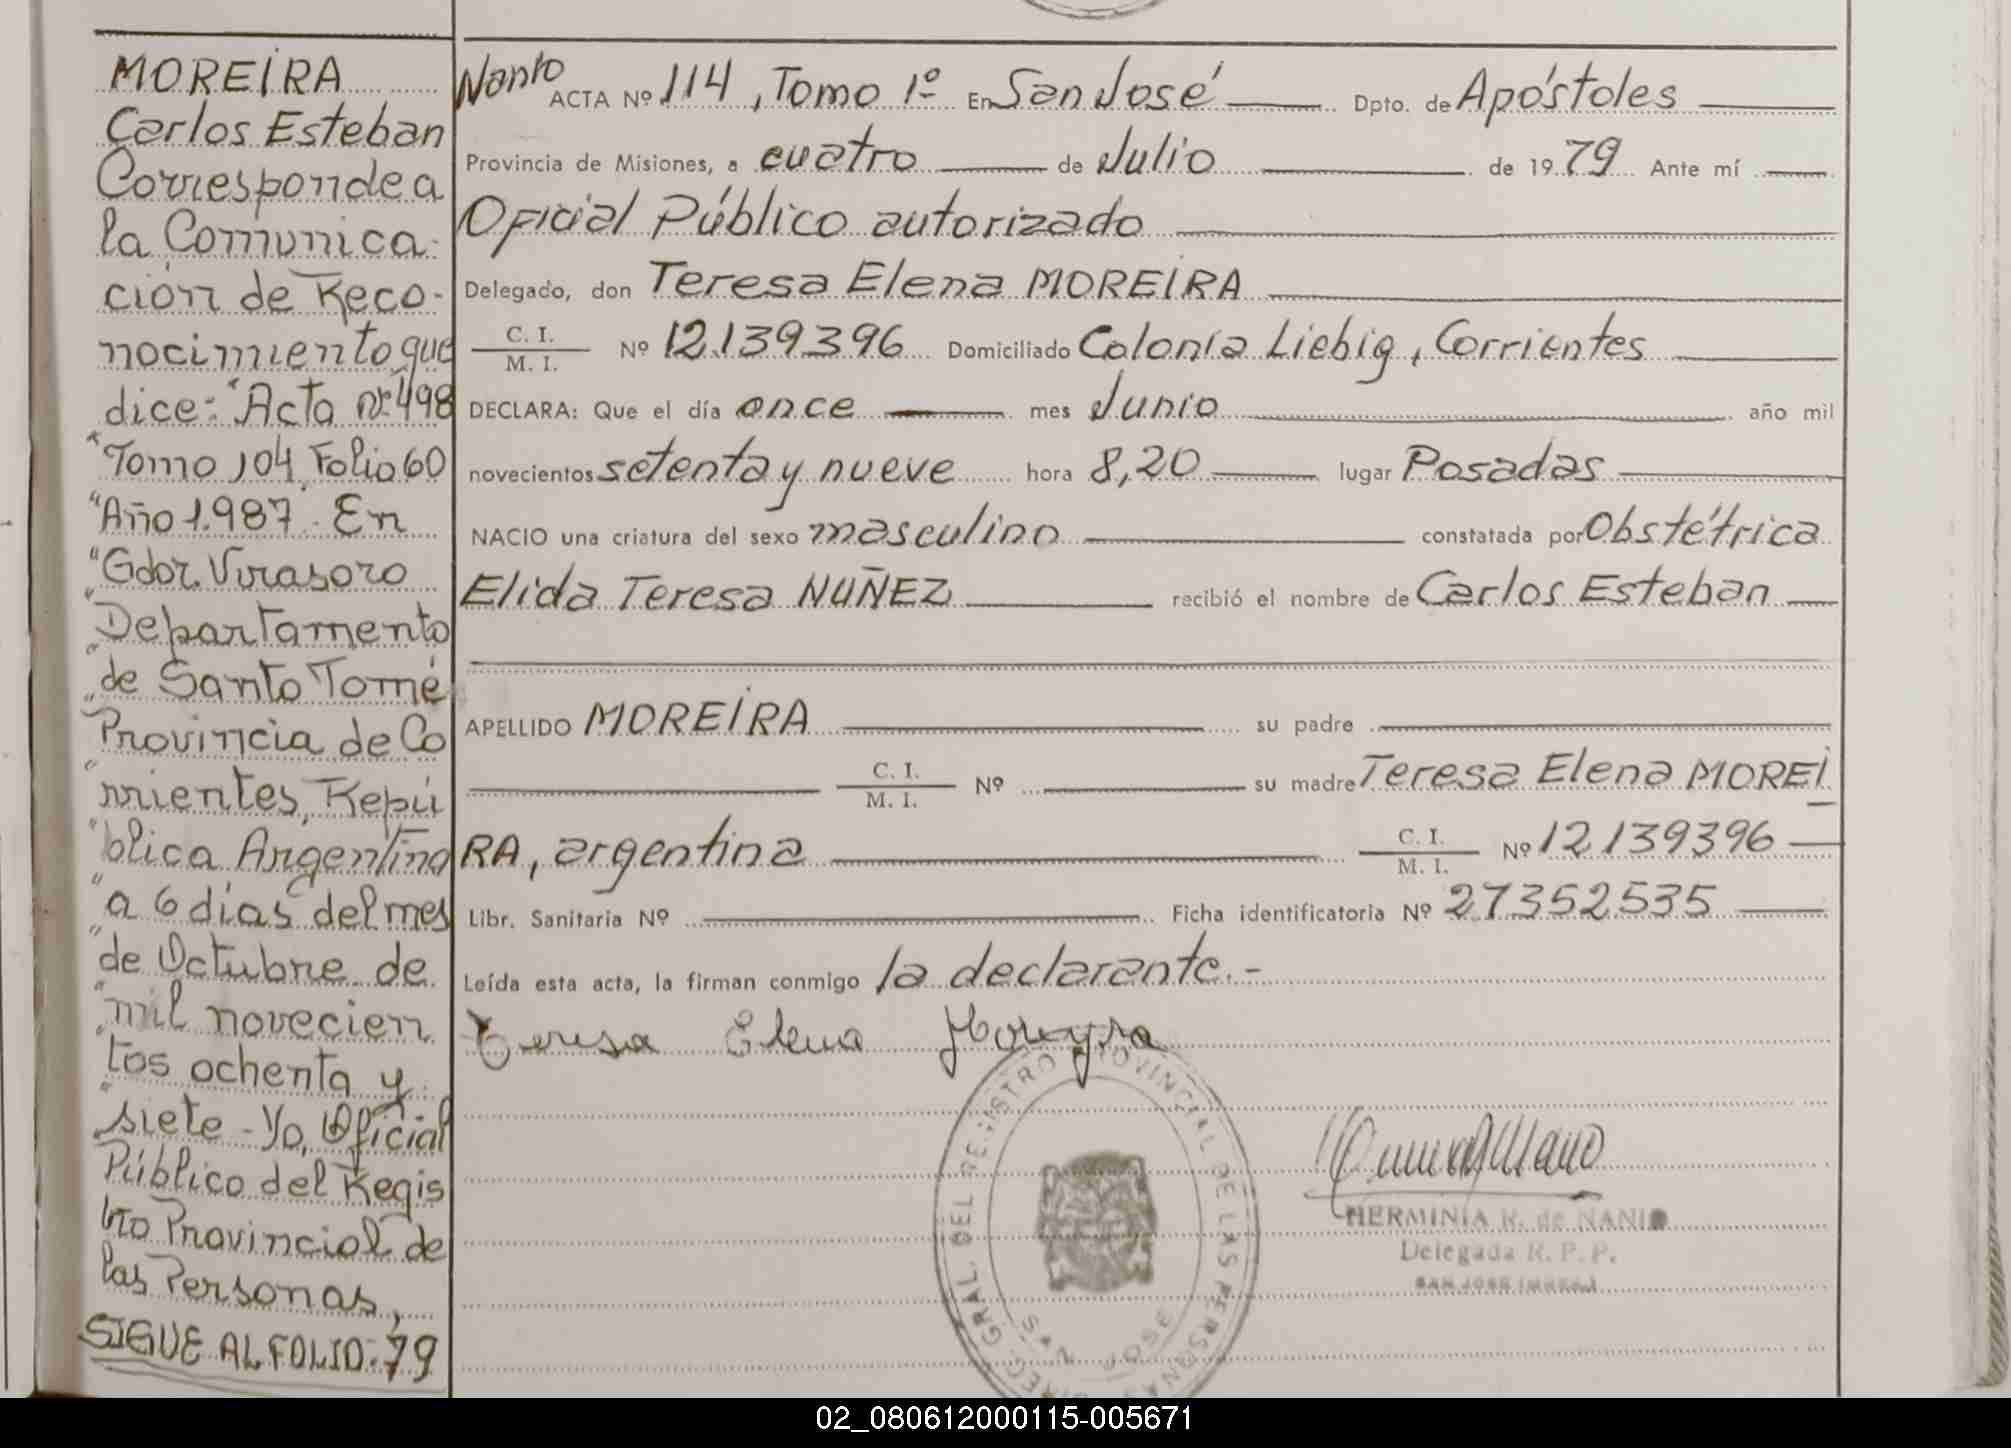 MOREIRA
Carlos Esteban
Corresponde a
la Comunica-
ción de Reco-
nocimiento que
dice: "Acta nº 498
"Tomo 104, Folio 60
"Año 1.987. En
"Gdor. Virasoro
"Departamento
"de Santo Tomé
Provincia de Co
"rrientes, Repú
"blica Argentina
"a 6 días del mes
"de Octubre de
"mil novecien
tos ochenta y
"siete - Yo, Oficial
Público del Regis
tro Provincial de
las Personas,
SIGUE AL FOLIO: 79
ACTA Nº 114, Tomo 1º En San José Dpto. de Apóstoles
Provincia de Misiones, a cuatro de Julio de 1979 Ante mí
Oficial Público autorizado
Delegado, don Teresa Elena MOREIRA
C. I.
M. I. Nº 12.139.396 Domiciliado Colonia Liebig, Corrientes
DECLARA: Que el día once mes Junio año mil
novecientos setenta y nueve hora 8,20 lugar Posadas
NACIO una criatura del sexo masculino constatada por Obstétrica
Elida Teresa NUÑEZ recibió el nombre de Carlos Esteban
APELLIDO MOREIRA su padre
C. I.
M. I. Nº su madre Teresa Elena MOREI
RA, argentina C. I.
M. I. Nº 12.139396
Libr. Sanitaria Nº Ficha identificatoria Nº 27352535
Leída esta acta, la firman conmigo la declarante.-
Teresa Elena Moreyra
DIREC. GRAL. DEL REGISTRO PROVINCIAL DE LAS PERSONAS
SAN JOSE
HERMINIA R. de NANIO
Delegada R. P. P.
SAN JOSE
02_080612000115-005671